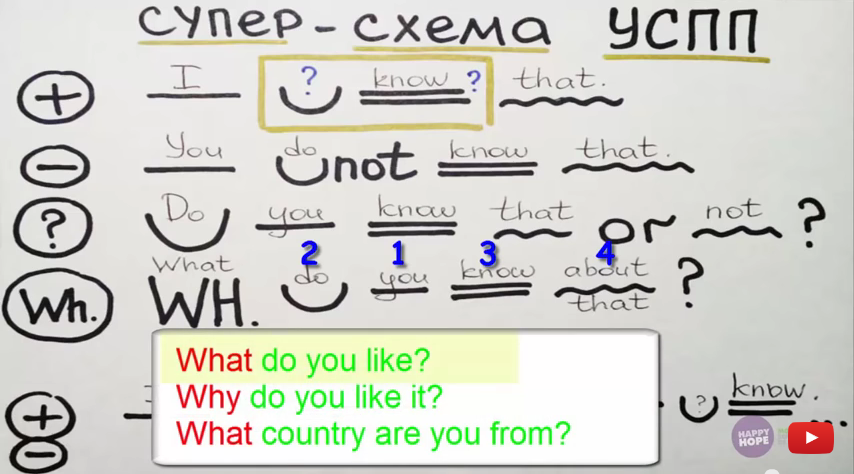 СУПЕР - СХЕМА УСПП
+ I ? know ? that.
- You do not know that.
? Do you know that or not ?
2 1 3 4
What
Wh. WH. do you know about that ?
What do you like?
Why do you like it?
What country are you from?
+ ? know.
- ...
HAPPY HOPE